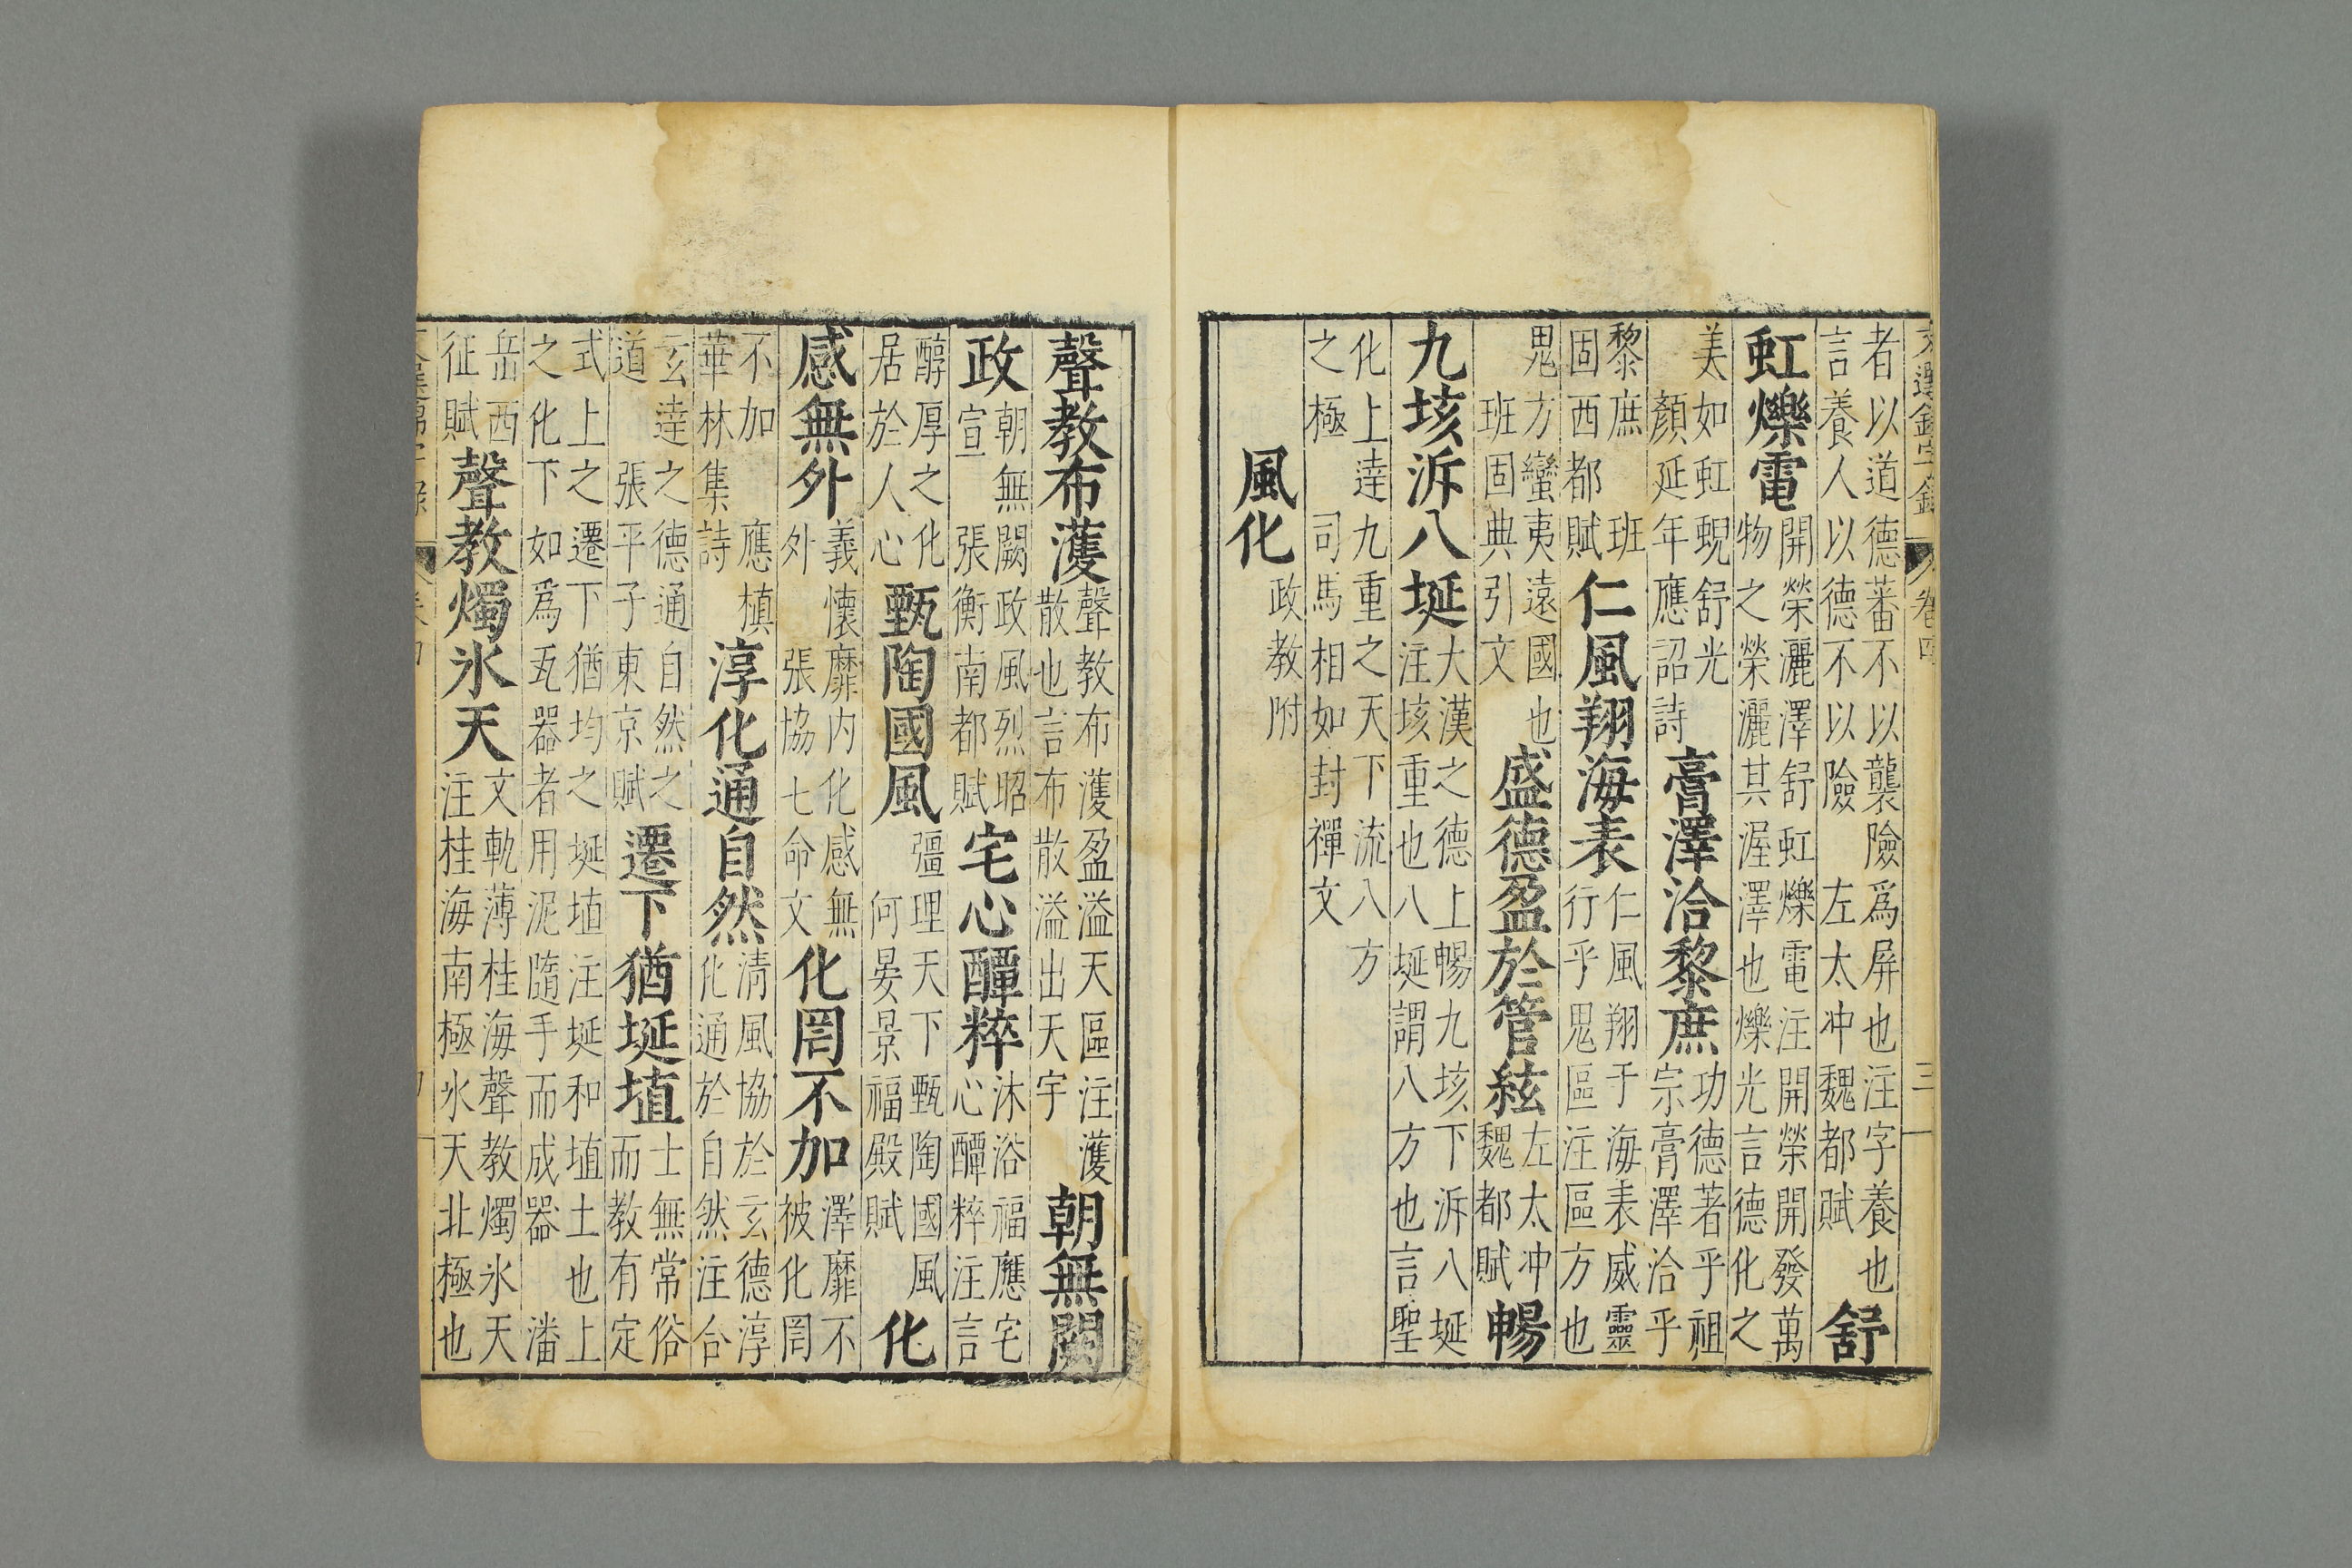 文選錦字錄 卷四 三
者以道德蕃不以襲險爲屏也注字養也
言養人以德不以險 左太冲魏都賦
舒
虹爍電
開榮灑澤舒虹爍電注開榮開發萬
物之榮灑其渥澤也爍光言德化之
美如虹蜺舒光
顏延年應詔詩
膏澤洽黎庶
功德著乎祖
宗膏澤洽乎
黎庶 班
固西都賦
仁風翔海表
仁風翔于海表威靈
行乎鬼區注區方也
鬼方蠻夷遠國也
班固典引文
盛德盈於管絃
左太冲
魏都賦
暢
九垓泝八埏
大漢之德上暢九垓下泝八埏
注垓重也八埏謂八方也言聖
化上逹九重之天下流八方
之極 司馬相如封禪文
風化
政教附
聲教布濩
聲教布濩盈溢天區注濩
散也言布散溢出天宇
朝無闕
政
朝無闕政風烈昭
宣 張衡南都賦
宅心醰粹
沐浴福應宅
心醰粹注言
醇厚之化
居於人心
甄陶國風
彊理天下甄陶國風
何晏景福殿賦
化
感無外
義懷靡内化感無
外 張協七命文
化罔不加
澤靡不
被化罔
不加 應楨
華林集詩
淳化通自然
清風協於玄德淳
化通於自然注合
玄逹之德通自然之
道 張平子東京賦
遷下猶埏埴
士無常俗
而教有定
式上之遷下猶均之埏埴注埏和埴土也上
之化下如爲瓦器者用泥隨手而成器 潘
岳西
征賦
聲教燭氷天
文軌薄桂海聲教燭氷天
注桂海南極氷天北極也